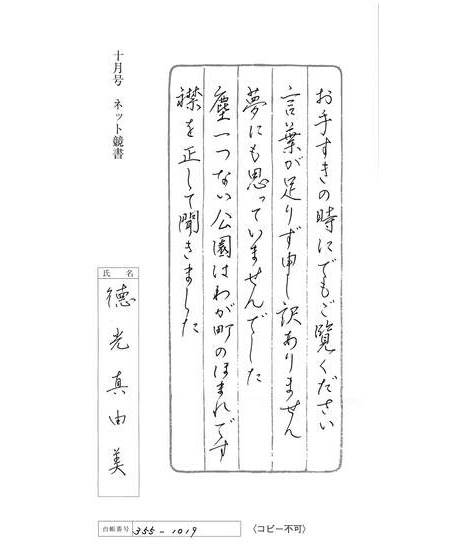 十月号 ネット競書
お手すきの時にでもご覧ください
言葉が足りず申し訳ありません
夢にも思っていませんでした
塵一つない公園はわが町のほまれです
襟を正して聞きました
氏名
徳光真由美
台帳番号 355-1019
〈コピー不可〉